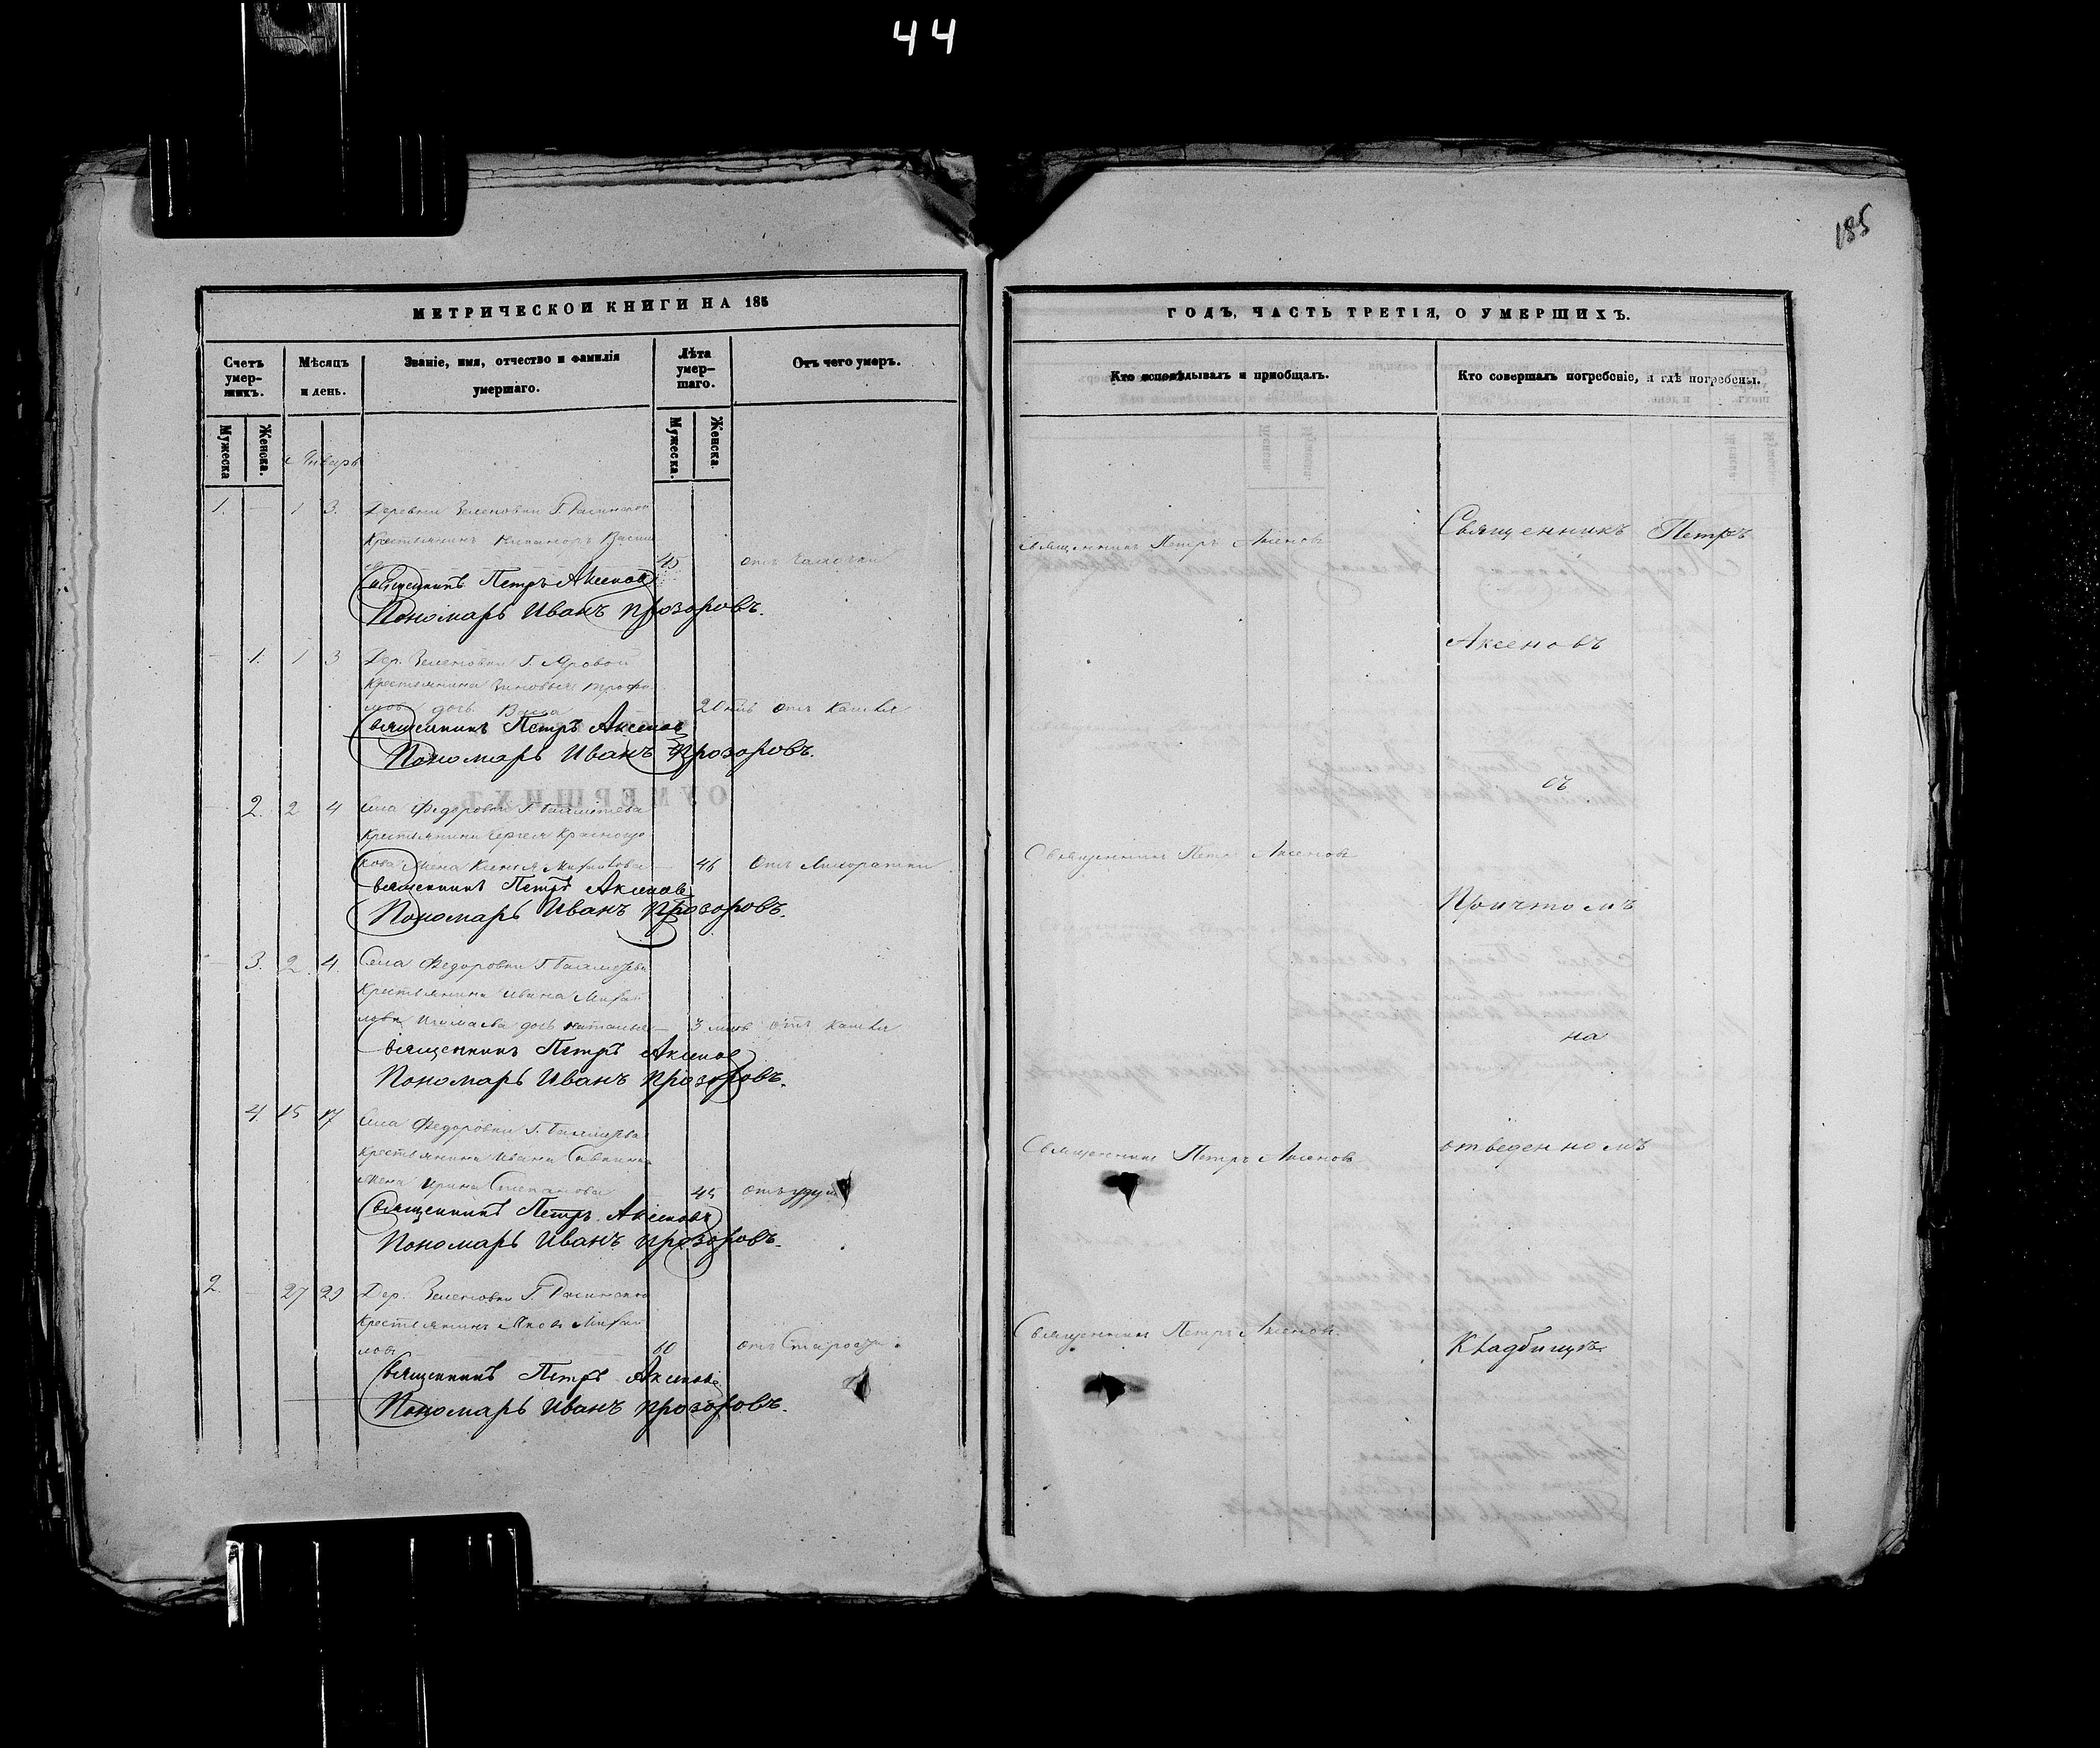 44
185
МЕТРИЧЕСКОЙ КНИГИ НА 185
Счетъ умер-шихъ.
Мѣсяцъ и день.
Званіе, имя, отчество и фамилія умершаго.
Лѣта умер-шаго.
Отъ чего умеръ.
Мужеска
Женска.
Мужеска.
Женска.
Январь
1. - 1 3. Деревни Зеленовки Г.
Крестьянинъ Никаноръ Васильевъ 45 отъ чахотки
Священникъ Петръ Аксеновъ
Пономарь Иванъ Прозоровъ.
- 1. 1 3 Дер. Зеленовки Г. Яровой
Крестьянина Зиновья Трофимова дочь Васса 20 отъ кашля
Священникъ Петръ Аксеновъ
Пономарь Иванъ Прозоровъ.
- 2. 2 4 Села Федоровки Г.
Крестьянина Сергея
жена Ксенія Михайлова - 46 отъ лихорадки
Священникъ Петръ Аксеновъ
Пономарь Иванъ Прозоровъ.
- 3. 2. 4. Села Федоровки Г.
Крестьянина Ивана Михайлова дочь Наталья - 3 отъ кашля
Священникъ Петръ Аксеновъ
Пономарь Иванъ Прозоровъ.
4. 15 17 Села Федоровки Г.
Крестьянина Ивана Савкина
жена Ирина Степанова 45 отъ
Священникъ Петръ Аксеновъ
Пономарь Иванъ Прозоровъ.
2. - 27 29 Дер. Зеленовки Г.
Крестьянинъ Яковъ Михайловъ 60 отъ старости
Священникъ Петръ Аксеновъ
Пономарь Иванъ Прозоровъ.
ГОДЪ, ЧАСТЬ ТРЕТІЯ, О УМЕРШИХЪ.
Кто исповѣдывалъ и пріобщалъ.
Кто совершалъ погребеніе, и гдѣ погребены.
Священникъ Петръ Аксеновъ
Священникъ Петръ Аксеновъ
Священникъ Петръ Аксеновъ
Священникъ Петръ Аксеновъ
Священникъ Петръ
Аксеновъ
съ
Причтомъ
на
отведенномъ
Кладбищѣ.